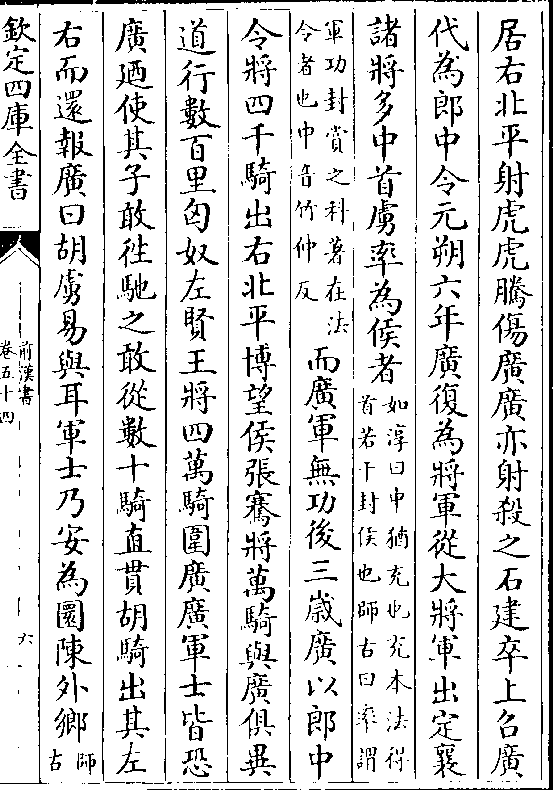 居右北平射虎虎騰傷廣廣亦射殺之石建卒上召廣
代為郎中令元朔六年廣復為將軍從大將軍出定襄
諸將多中首虜率為侯者如淳曰中猶充也充本法得
首若干封侯也師古曰率謂
軍功封賞之科著在法
令者也中音竹仲反而廣軍無功後三歲廣以郎中
令將四千騎出右北平博望侯張騫將萬騎與廣俱異
道行數百里匈奴左賢王將四萬騎圍廣廣軍士皆恐
廣廼使其子敢往馳之敢從數十騎直貫胡騎出其左
右而還報廣曰胡虜易與耳軍士乃安為圜陳外鄉師
古
欽定四庫全書
前漢書
卷五十四
六